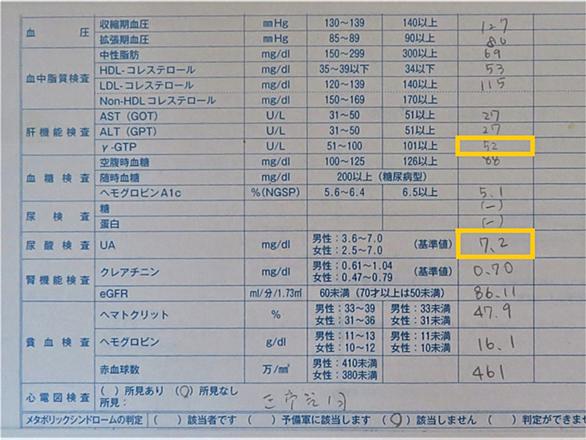 血 圧 収縮期血圧 mmHg 130～139 140以上 127
拡張期血圧 mmHg 85～89 90以上 80
血中脂質検査 中性脂肪 mg/dl 150～299 300以上 69
HDL-コレステロール mg/dl 35～39以下 34以下 53
LDL-コレステロール mg/dl 120～139 140以上 115
Non-HDLコレステロール mg/dl 150～169 170以上
肝機能検査 AST (GOT) U/L 31～50 51以上 27
ALT (GPT) U/L 31～50 51以上 27
γ-GTP U/L 51～100 101以上 52
血糖検査 空腹時血糖 mg/dl 100～125 126以上 88
随時血糖 mg/dl 200以上 (糖尿病型)
ヘモグロビンA1c %(NGSP) 5.6～6.4 6.5以上 5.1
尿検査 糖 (-)
蛋白 (-)
尿酸検査 UA mg/dl 男性：3.6～7.0 (基準値) 7.2
女性：2.5～7.0
腎機能検査 クレアチニン mg/dl 男性：0.61～1.04 (基準値) 0.70
女性：0.47～0.79
eGFR ml/分/1.73㎡ 60未満 (70才以上は50未満) 86.11
貧血検査 ヘマトクリット % 男性：33～39 男性：33未満 47.9
女性：31～36 女性：31未満
ヘモグロビン g/dl 男性：11～13 男性：11未満 16.1
女性：10～12 女性：10未満
赤血球数 万/m㎥ 男性：410未満 461
女性：380未満
心電図検査 ( )所見あり (○)所見なし
所見：
メタボリックシンドロームの判定 ( )該当者です ( )予備軍に該当します (○)該当しません ( )判定ができませ